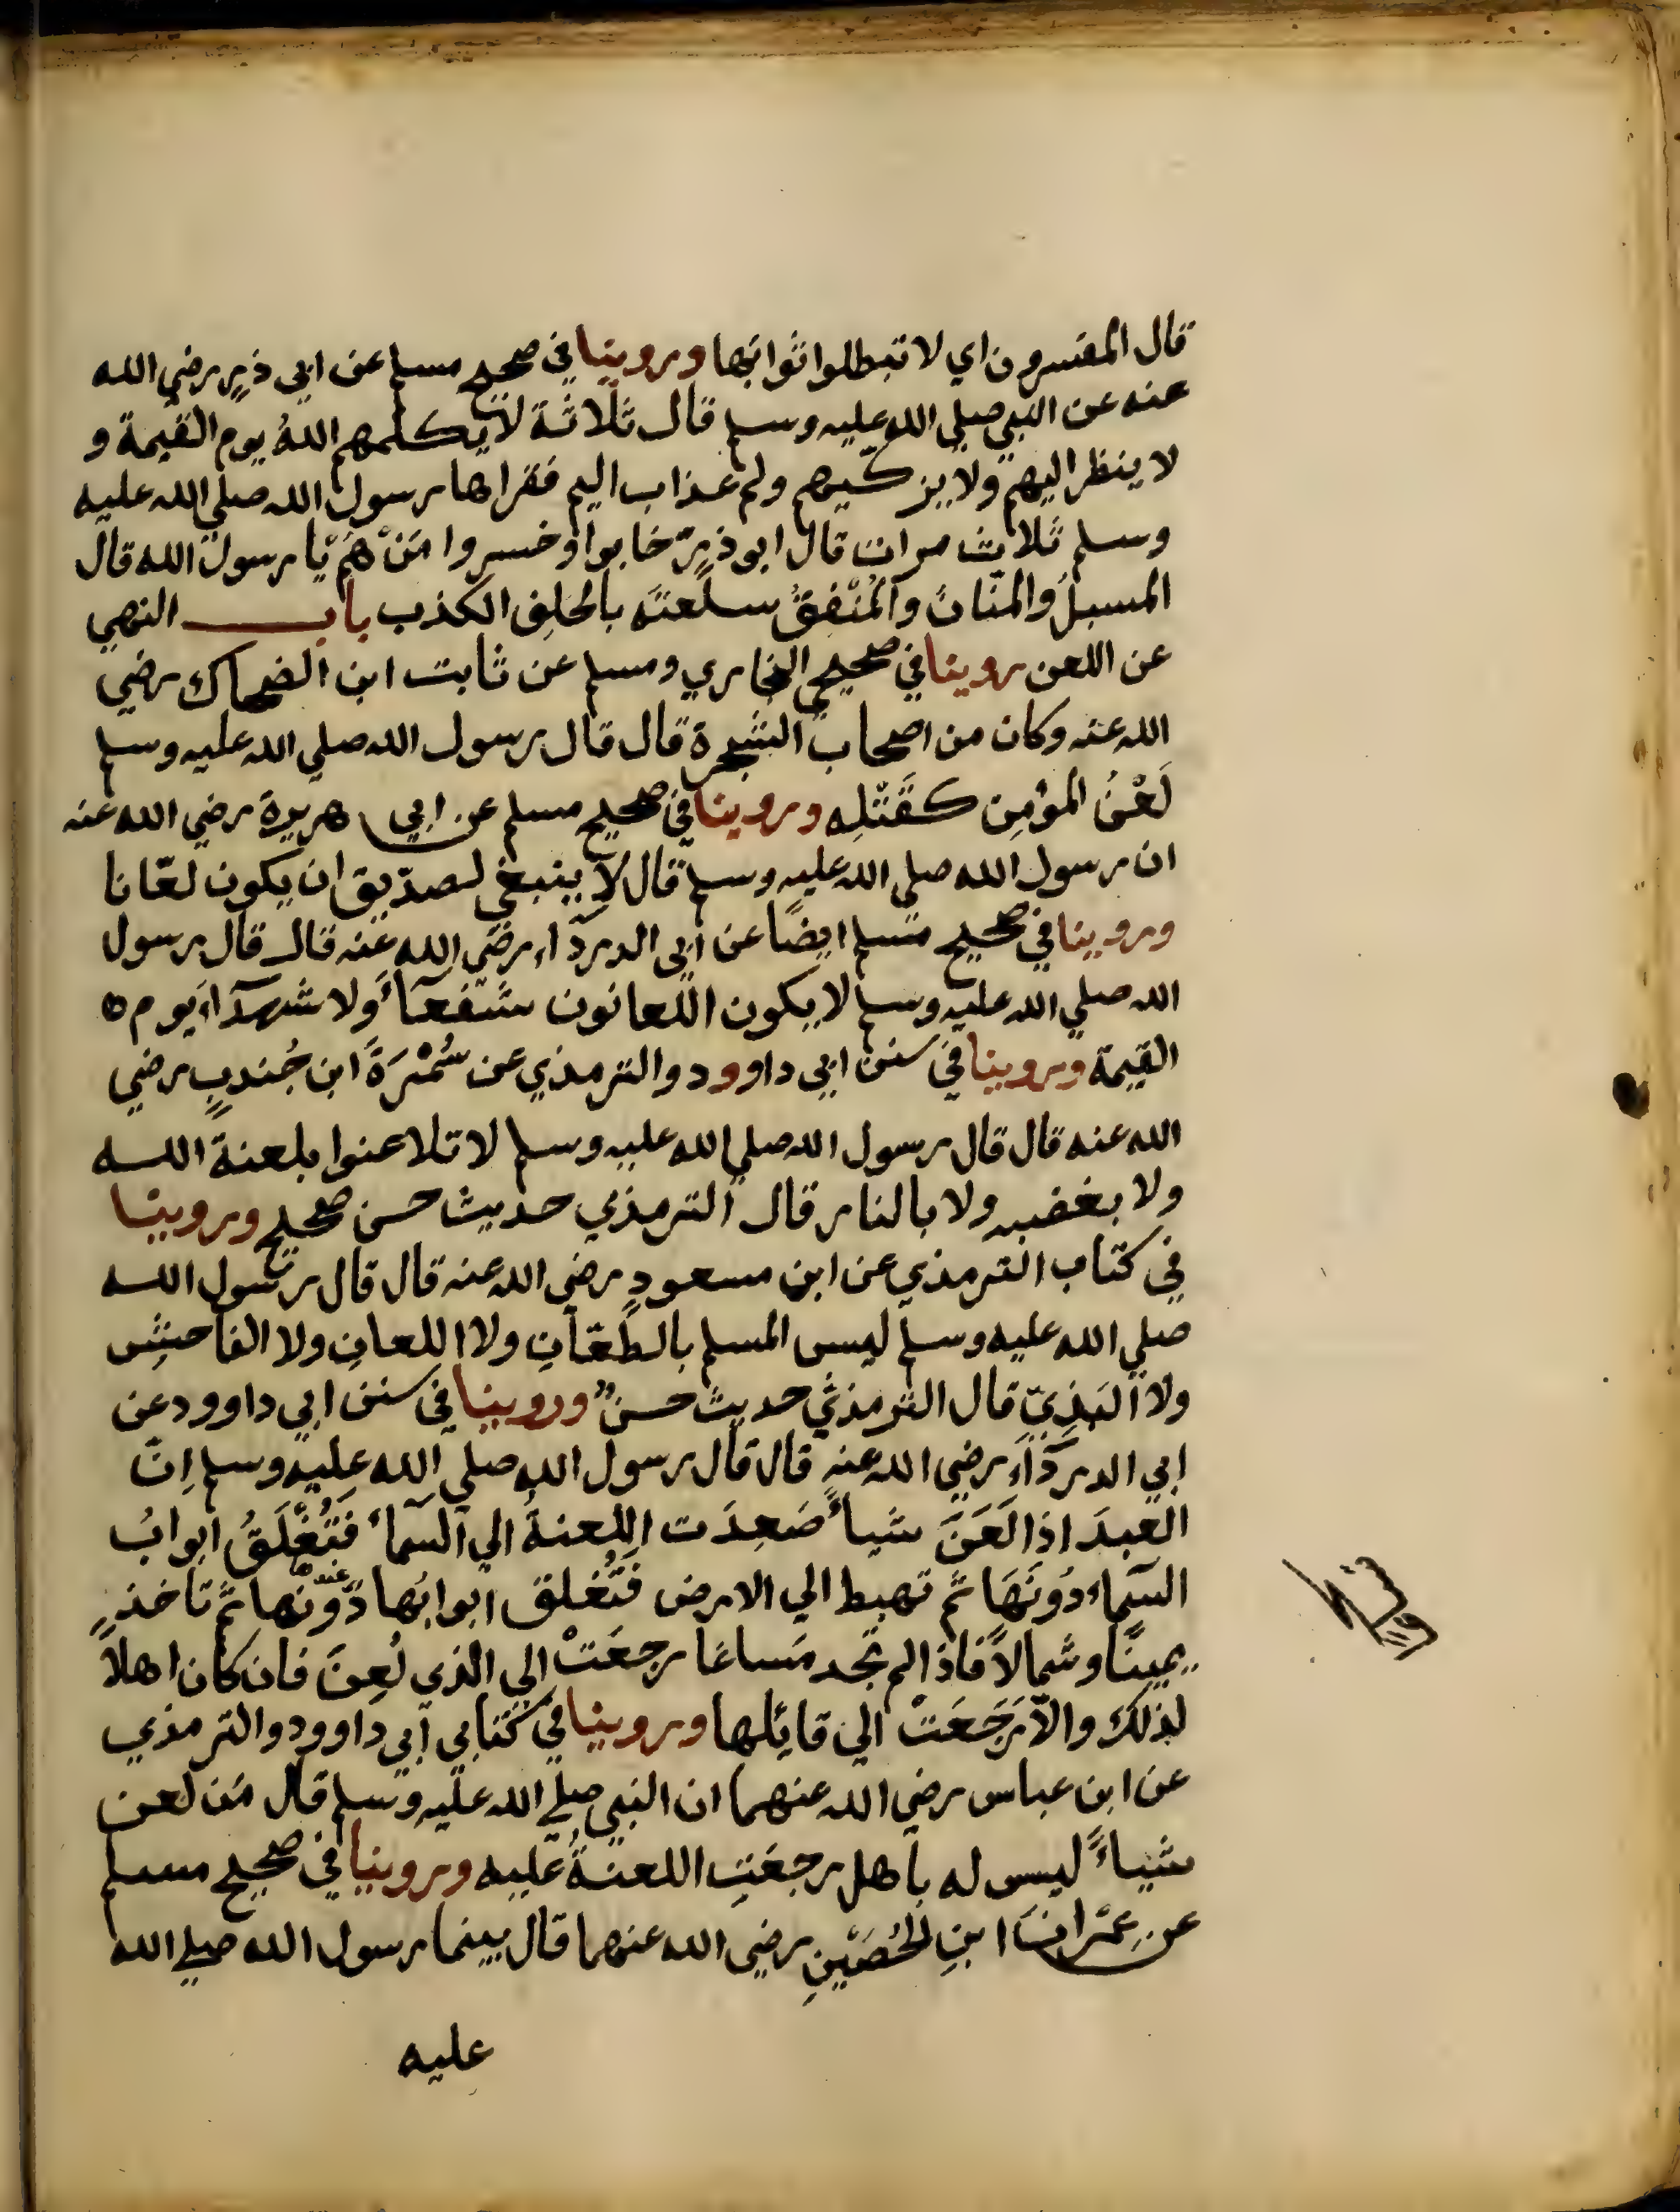 قال المفسرون اي لا تبطلوا ثوابها وروينا في صحيح مسلم عن ابي ذرٍ رضي الله
عنه عن النبي صلي الله عليه وسلم قال ثلاثة لا يكلمهم اللهُ يوم القيمة و
لا ينظر اليهم ولا يزكّيهم ولهم عذاب اليم فقراها رسول الله صلي الله عليه
وسلم ثلاث مرات قال ابو ذرٍّ خابوا وخسروا مَنْ هُم يا رسول الله قال
المسبلُ والمنّانُ والمُنْفِقُ سلعتَه بالحلِف الكذب باب النهي
عن اللعن روينا في صحيحي البخاري ومسلم عن ثابت ابن الضحاك رضي
الله عنه وكان من اصحاب الشجرة قال قال رسول الله صلي الله عليه وسلم
لَعْنُ المؤمِن كقَتْلِه وروينا في صحيح مسلم عن ابي هريرة رضي الله عنه
ان رسول الله صلي الله عليه وسلم قال لا ينبغي لصدّيق ان يكون لعّانا
وروينا في صحيح مسلم ايضًا عن ابي الدردآء رضي الله عنه قال قال رسول
الله صلي الله عليه وسلم لا يكون اللعانون شفعآءَ ولا شهدآءَ يوم
القيمة وروينا في سنن ابي داوود والترمذي عن سُمْرَةَ ابن جُندبٍ رضي
الله عنه قال قال رسول الله صلي الله عليه وسلم لا تلاعنوا بلعنة الله
ولا بغضبه ولا بالنار قال الترمذي حديث حسن صحيح وروينا
في كتاب الترمذي عن ابن مسعودٍ رضي الله عنه قال قال رسول الله
صلي الله عليه وسلم ليس المسلم بالطعّانِ ولا اللعانِ ولا الفاحشِ
ولا البَذِيّ قال الترمذيُّ حديث حسنٌ وروينا في سنن ابي داوود عن
ابي الدردآءِ رضي الله عنه قال قال رسول الله صلي الله عليه وسلم اِنّ
العبدَ اذا لَعَنَ شياءً صَعِدَت اللعنةُ الي السّماء فَتُغْلَقُ ابوابُ
السّماء دُونَهَا ثم تهبط الي الارض فَتُغلق ابوابُها دُونها عنه ثم تاخذ
يمينًا وشمالاً فاذا لم تجد مَساغا رجعَتْ الي الذي لُعِنَ فان كان اهلاً
لذلك والاّ رَجَعَتْ الي قائلها وروينا في كتابي ابي داوود والترمذي
عن ابن عباس رضي الله عنهما ان النبي صلي الله عليه وسلم قال مَن لعن
شياءً ليس له باهل رجعَتِ اللعنةُ عليه وروينا في صحيح مسلم
عن عِمْرانَ ابنِ الحُصَيْنِ رضي الله عنهما قال بينما رسول الله صلي الله
عليه